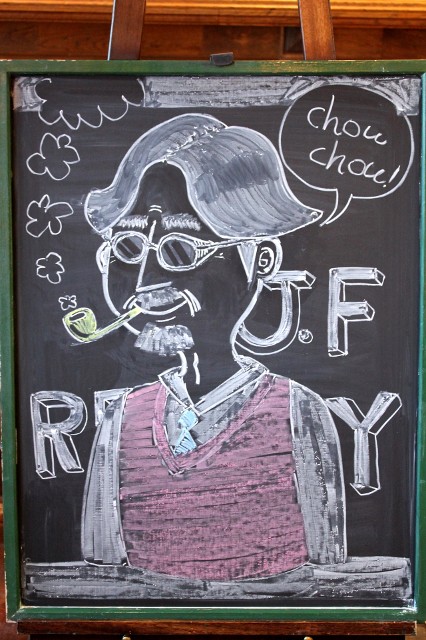 chou
chou!
J.F
REY